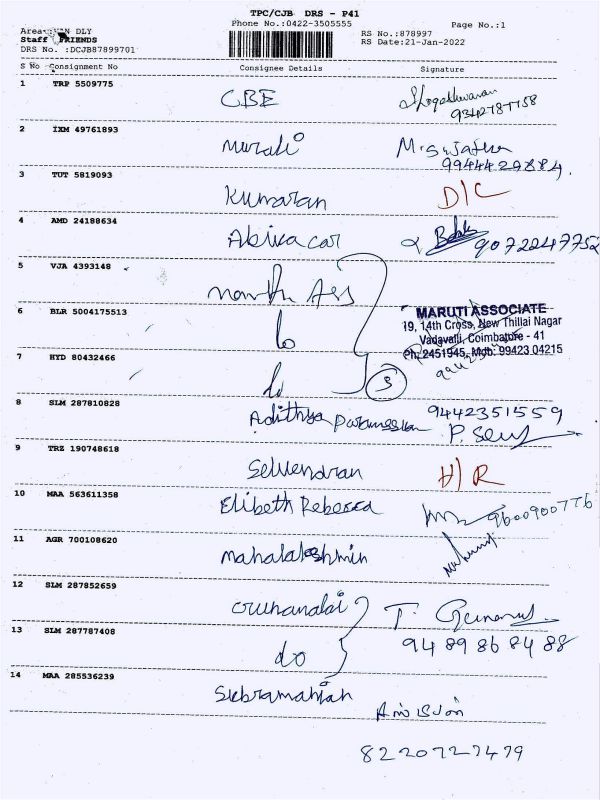 TPC/CJB DRS - P41
Phone No.:0422-3505555
Page No.:1
Area: VAN DLY
Staff FRIENDS
DRS No. :DCJB87899701
RS No.:878997
RS Date:21-Jan-2022
S No Consignment No Consignee Details Signature
1 TRP 5509775 CBE
9342787758
2 IXM 49761893 Murali M. Sujatha
9944429884
3 TUT 5819093 Kumaran D/C
4 AMD 24188634 Abika car 9072247752
5 VJA 4393148
6 BLR 5004175513 do
MARUTI ASSOCIATE
19, 14th Cross, New Thillai Nagar
Vadavalli, Coimbatore - 41
Ph: 2451945, Mob: 99423 04215
7 HYD 80432466 do 3
8 SLM 287810828 Adithya Parameswan 9442351559
P. Senf
9 TRZ 190748618 Selvendran H/R
10 MAA 563611358 Elibeth Rebecca 9600900776
11 AGR 700108620 Mahalakshmin
12 SLM 287852659 T.
13 SLM 287787408 do 9489868488
14 MAA 285536239 Subramanian
8220727479